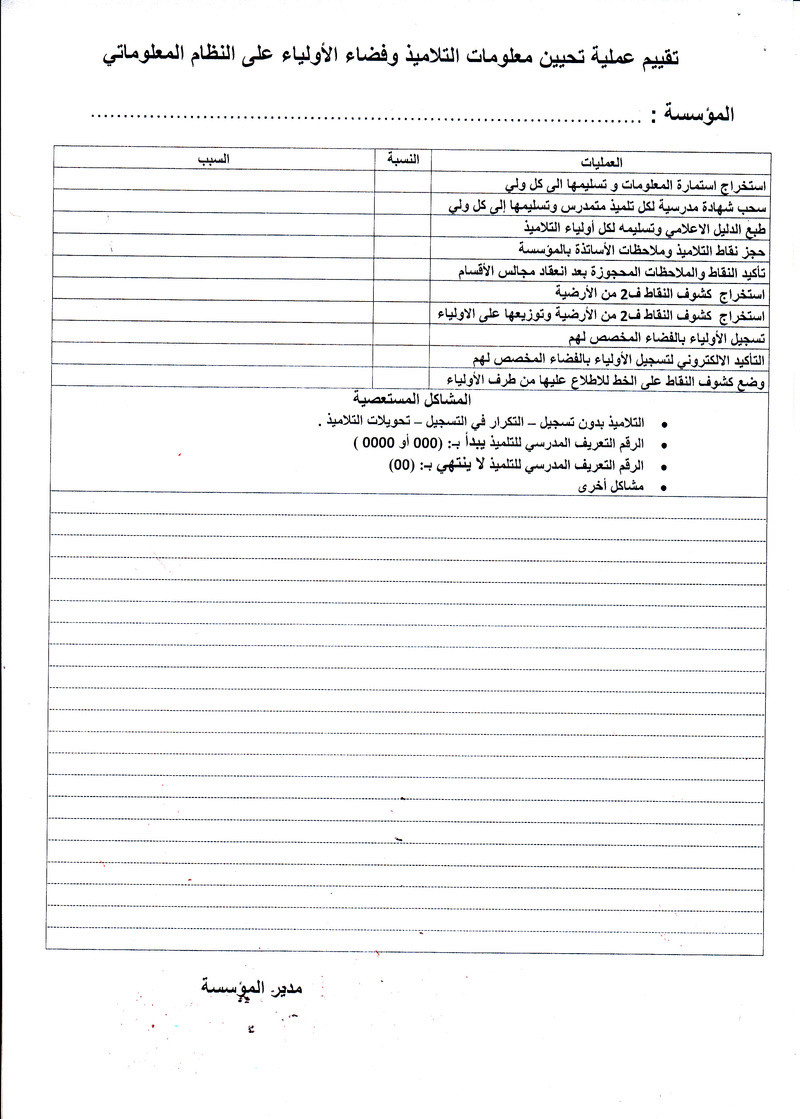 تقييم عملية تحيين معلومات التلاميذ وفضاء الأولياء على النظام المعلوماتي
المؤسسة : ......................................................................................
العمليات النسبة السبب
استخراج استمارة المعلومات و تسليمها الى كل ولي
سحب شهادة مدرسية لكل تلميذ متمدرس وتسليمها إلى كل ولي
طبع الدليل الاعلامي وتسليمه لكل أولياء التلاميذ
حجز نقاط التلاميذ وملاحظات الأساتذة بالمؤسسة
تأكيد النقاط والملاحظات المحجوزة بعد انعقاد مجالس الأقسام
استخراج كشوف النقاط ف2 من الأرضية
استخراج كشوف النقاط ف2 من الأرضية وتوزيعها على الاولياء
تسجيل الأولياء بالفضاء المخصص لهم
التأكيد الالكتروني لتسجيل الأولياء بالفضاء المخصص لهم
وضع كشوف النقاط على الخط للاطلاع عليها من طرف الأولياء
المشاكل المستعصية
• التلاميذ بدون تسجيل – التكرار في التسجيل – تحويلات التلاميذ .
• الرقم التعريف المدرسي للتلميذ يبدأ بـ: (000 أو 0000 )
• الرقم التعريف المدرسي للتلميذ لا ينتهي بـ: (00)
• مشاكل أخرى
مدير المؤسسة